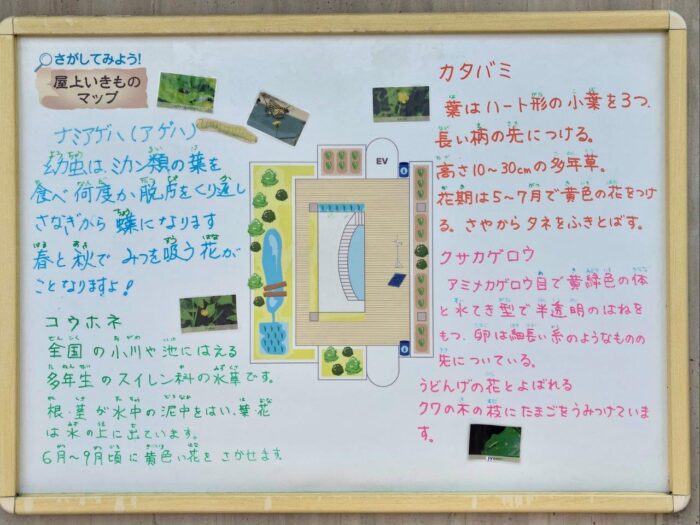 さがしてみよう!
屋上いきもの
マップ
ナミアゲハ(アゲハ)
幼虫はミカン類の葉を
食べ何度か脱皮をくり返し
さなぎから 蝶になります
春と秋で みつを吸う花が
ことなりますよ!
コウホネ
全国の小川や池にはえる
多年生のスイレン科の水草です。
根・茎が水中の泥中をはい、葉・花
は水の上に出ています。
6月〜9月頃に黄色い花をさかせます
EV
カタバミ
葉はハート形の小葉を3つ、
長い柄の先につける。
高さ10〜30cmの多年草。
花期は5〜7月で黄色の花をつけ
る。さやからタネをふきとばす。
クサカゲロウ
アミメカゲロウ目で黄緑色の体
と水てき型で半透明のはねを
もつ、卵は細長い糸のようなものの
先についている。
うどんげの花とよばれる
クワの木の枝にたまごをうみつけていま
す。